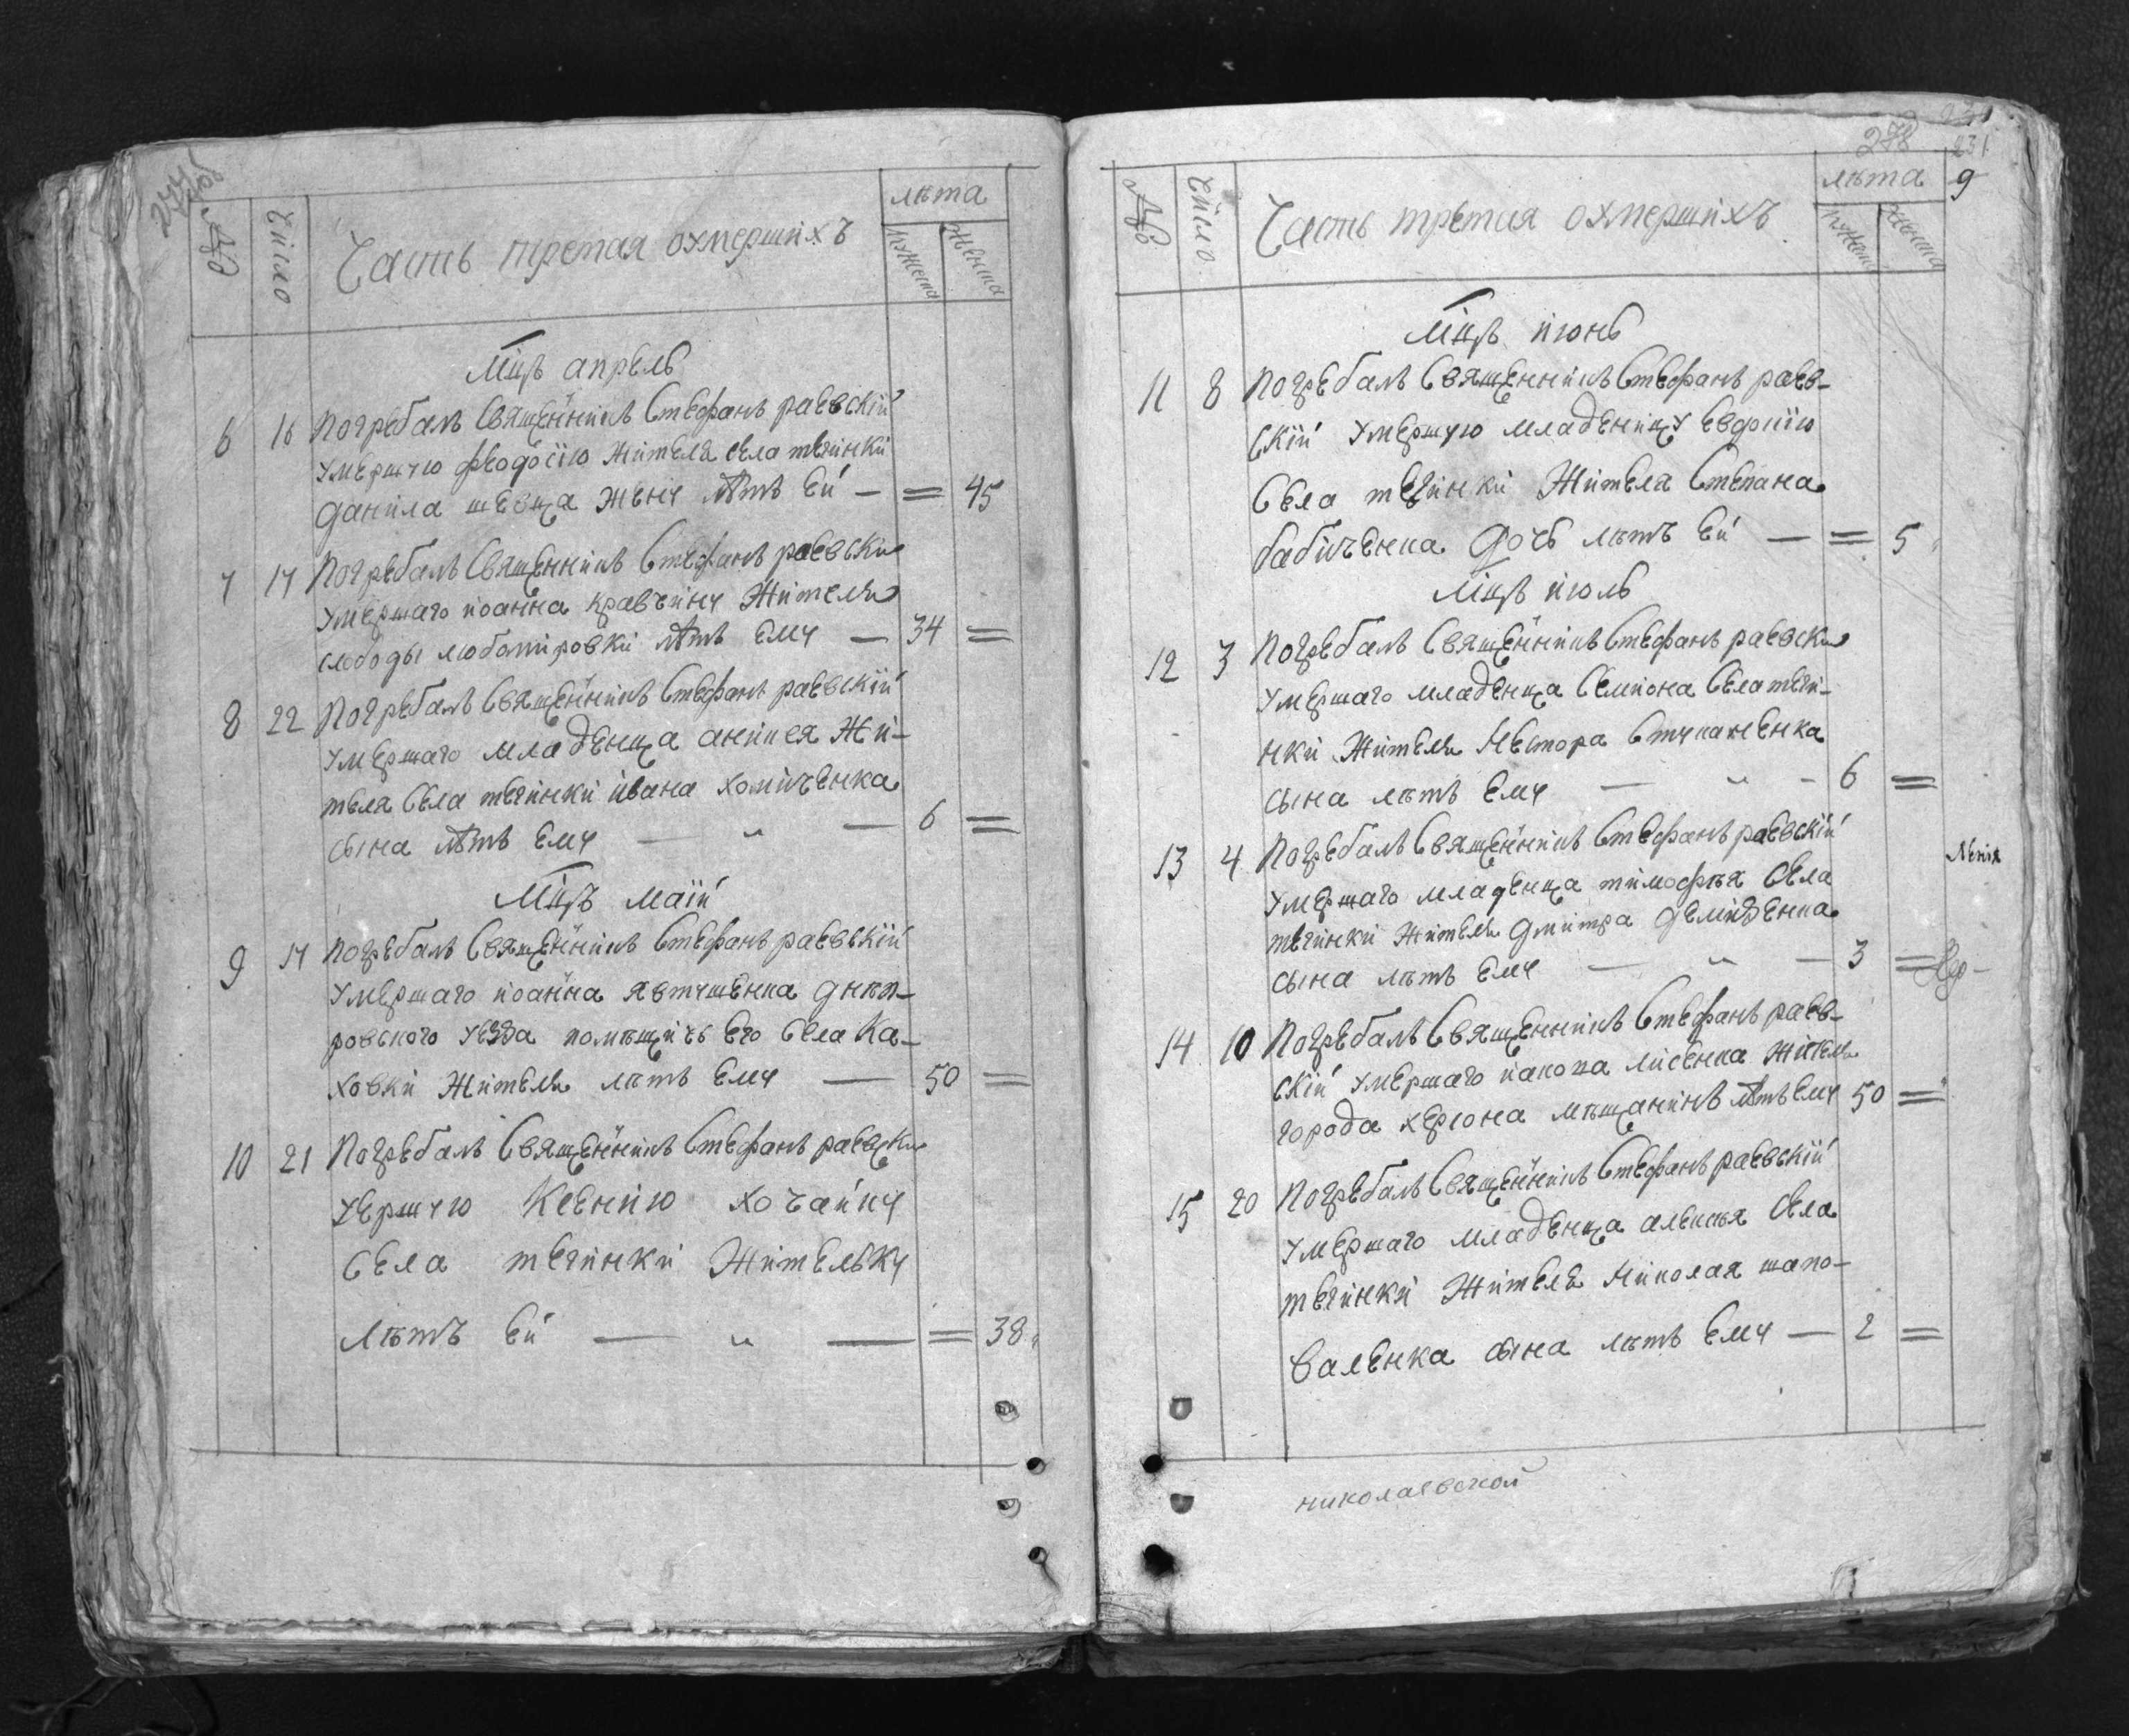 №
Число
Часть третая оумершихъ
лѣта
мужеска
женска
Мцъ апрель
6 16 Погребалъ Священникъ Стефанъ раевскій
умершую феодосію жителя села тегинки
данила шевца жену лѣтъ ей — = 45
7 17 Погребалъ Священникъ Стефанъ раевскій
умершаго иоанна кравчину жителя
слободы любомировки лѣтъ ему — 34 =
8 22 Погребалъ Священникъ Стефанъ раевскій
умершаго младенца анисея жи-
теля села тегинки ивана хомиченка
сына лѣтъ ему — „ — 6 =
Мцъ маій
9 17 погребалъ Священникъ Стефанъ раевскій
умершаго иоанна явтушенка днеп-
ровского уезда помещичъ его села Ка-
ховки жителя лѣтъ ему — 50 =
10 21 Погребалъ Священникъ Стефанъ раевски
умершую Ксению хочайку
Села тегинки жительку
лѣтъ ей — „ — = 38
278 231
№
Число
Часть третая оумершихъ
лѣта
9
мужеска
женска
Мцъ июнь
11 8 Погребалъ Священникъ Стефанъ раев-
скій умершую младеницу евдокию
Села тегинки жителя Степана
бабиченка дочь лѣтъ ей — = 5
Мцъ июль
12 3 Погребалъ Священникъ Стефанъ раевски
умершаго младенца Семиона Села теги-
нки жителя Нестора Ступаченка
сына лѣтъ ему — „ — 6 =
13 4 Погребалъ Священникъ Стефанъ раевскій
умершаго младенца тимофѣя Села
тегинки жителя дмитра демиденка
сына лѣтъ ему — „ — 3 =
14 10 Погребалъ Священникъ Стефанъ раев-
скій умершаго иакова лисенка жителя
города херсона мѣщанинъ лѣтъ ему 50 =
15 20 Погребалъ Священникъ Стефанъ раевскій
умершаго младенца алексѣя Села
тегинки жителя Николая шапо-
валенка сына лѣтъ ему — 2 =
николаевской